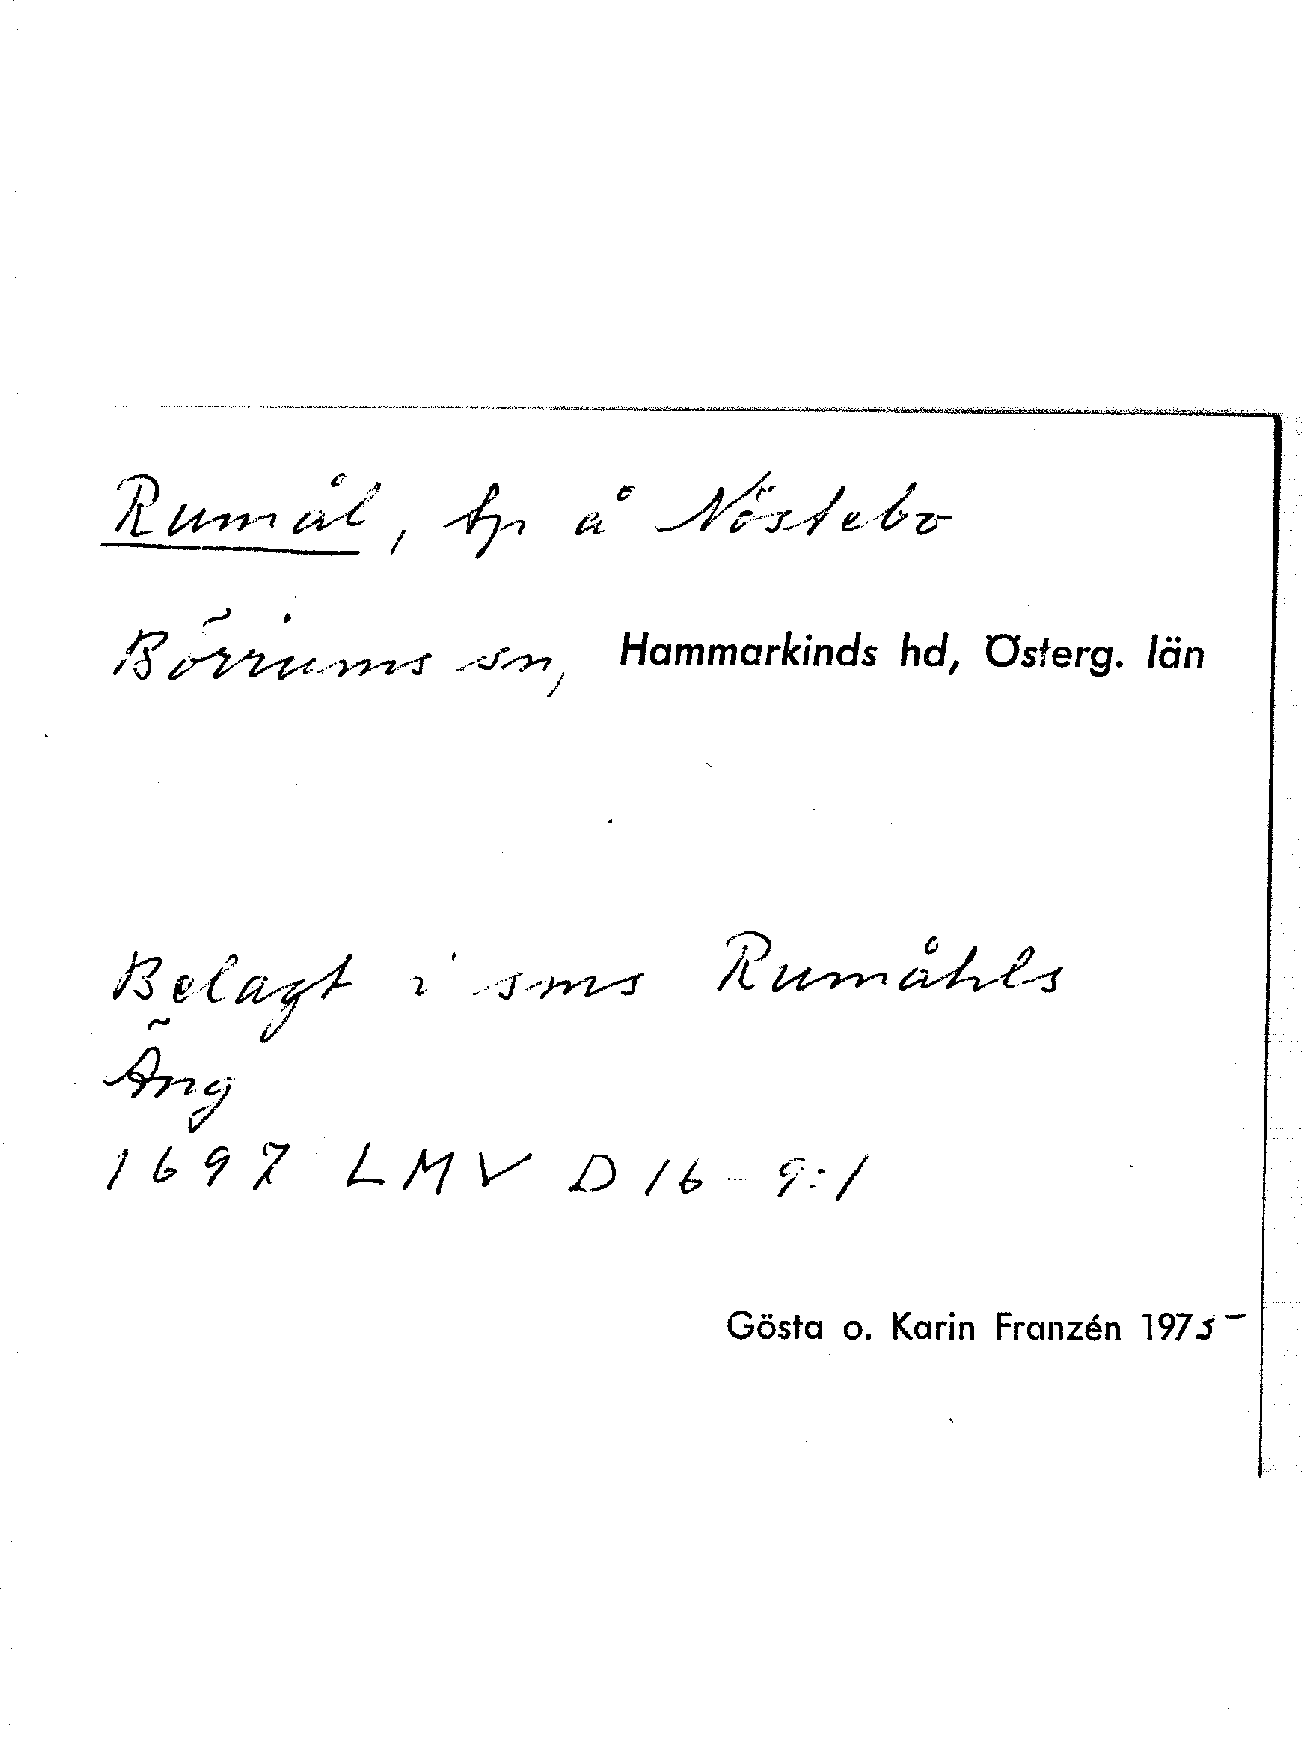 Rumål, tp å Nöstebo
Börrums sn, Hammarkinds hd, Österg. län
Belagt i sms Rumåhls
Äng
1697 LMV D 16 - 9:1
Gösta o. Karin Franzén 1975